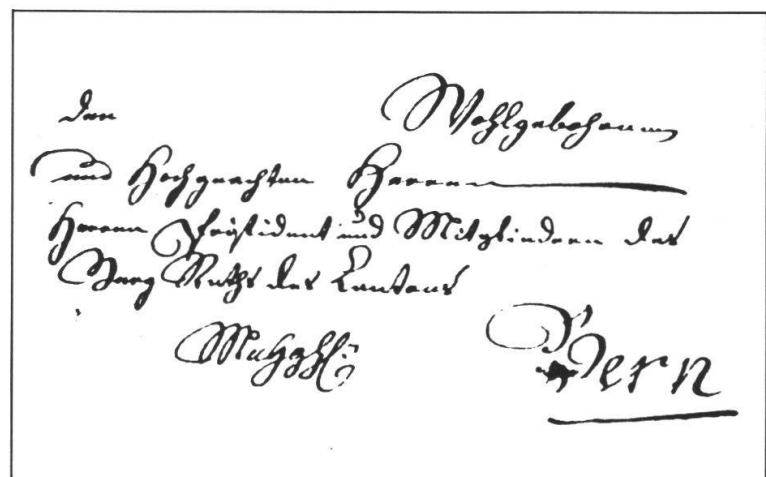 Den Wohlgebohrnen
und Hochgeachten Herren
Herren Präsident und Mitgliedern des
Berg Raths des Cantons
Bern